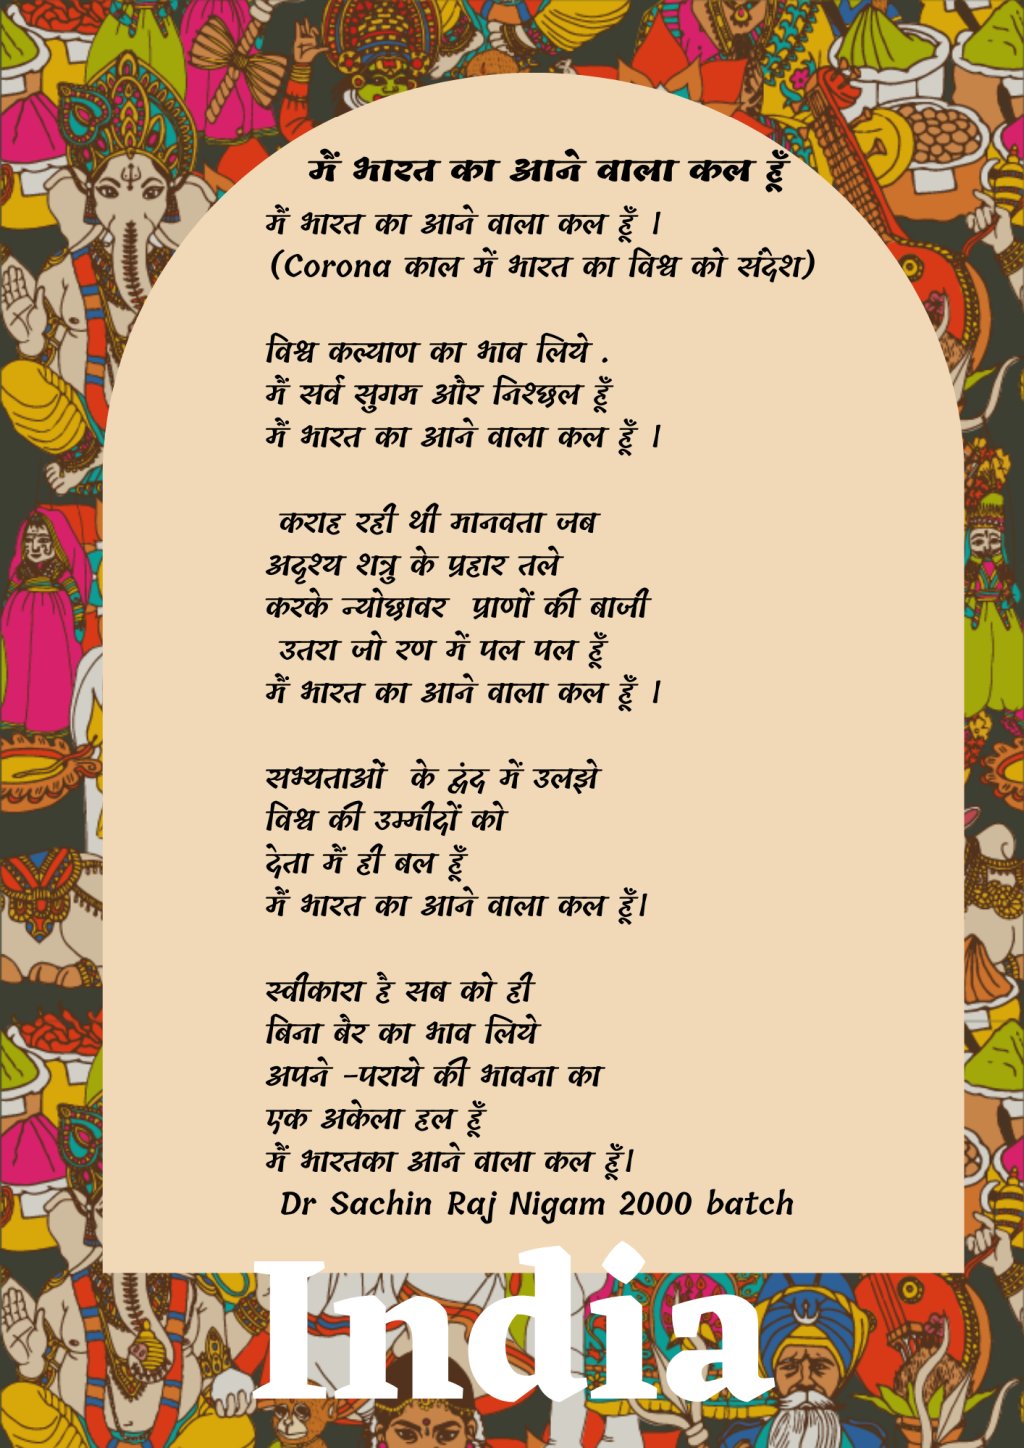 मैं भारत का आने वाला कल हूँ
मैं भारत का आने वाला कल हूँ ।
(Corona काल में भारत का विश्व को संदेश)
विश्व कल्याण का भाव लिये .
मैं सर्व सुगम और निश्छल हूँ
मैं भारत का आने वाला कल हूँ ।
कराह रही थी मानवता जब
अदृश्य शत्रु के प्रहार तले
करके न्योछावर प्राणों की बाजी
उतरा जो रण में पल पल हूँ
मैं भारत का आने वाला कल हूँ ।
सभ्यताओं के द्वंद में उलझे
विश्व की उम्मीदों को
देता मैं ही बल हूँ
मैं भारत का आने वाला कल हूँ।
स्वीकारा है सब को ही
बिना बैर का भाव लिये
अपने -पराये की भावना का
एक अकेला हल हूँ
मैं भारतका आने वाला कल हूँ।
Dr Sachin Raj Nigam 2000 batch
India